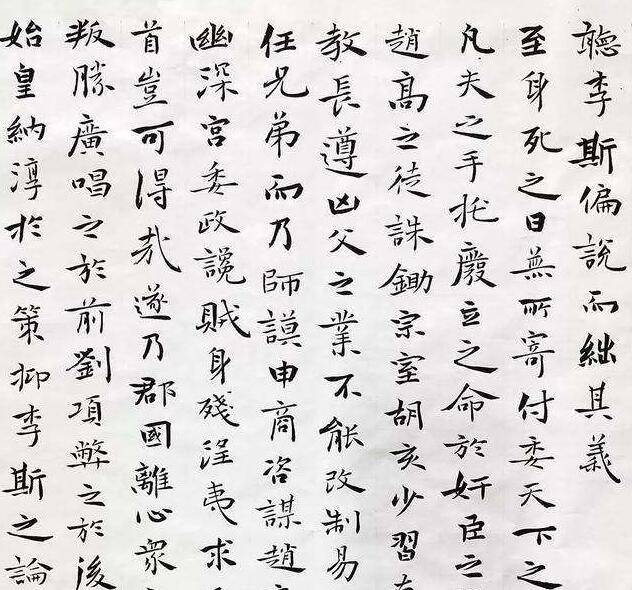 聽李斯偏說而絀其義
至身死之日無所寄付委天下之
凡夫之手托廢立之命於奸臣之
趙高之徒誅鋤宗室胡亥少習
教長遵凶父之業不能改制易
任兄弟而乃師謨申商咨謀趙
幽深宮委政讒賊身殘淫夷求
首豈可得哉遂乃郡國離心衆
叛勝廣唱之於前劉項弊之於後
始皇納淳於之策抑李斯之論